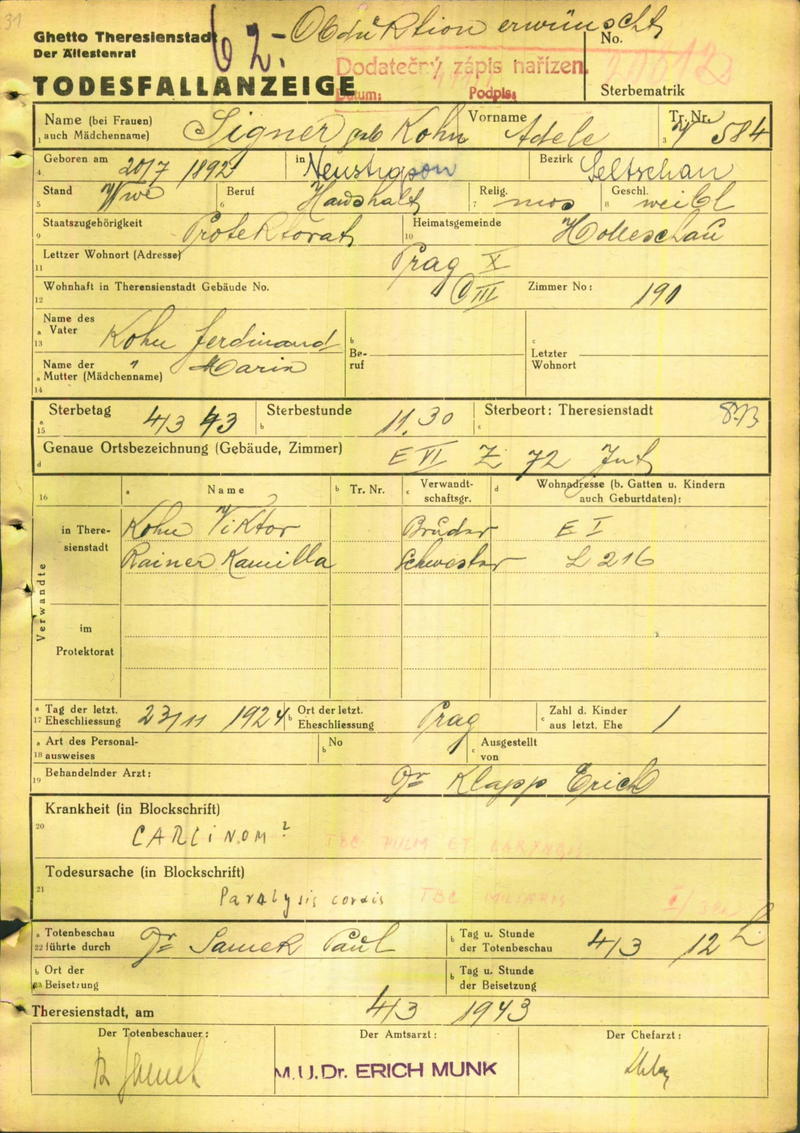 31
Ghetto Theresienstadt 62.- Obduktion erwünscht No.
Der Ältestenrat
Dodatečný zápis nařízen.
TODESFALLANZEIGE Datum: Podpis: Sterbematrik
Name (bei Frauen) auch Mädchenname) Signer geb Kohn Vorname Adele Tr. Nr. 584
Geboren am 20/7 1892 in Bezirk Seltschan
Stand Wwe Beruf Haushalt Relig. mos Geschl. weibl
Staatszugehörigkeit Protektorat Heimatsgemeinde Holleschau
Lettzer Wohnort (Adresse) Prag X
Wohnhaft in Therensienstadt Gebäude No. C III Zimmer No: 190
Name des Vater Kohn Ferdinand Be-ruf Letzter Wohnort
Name der Mutter (Mädchenname) " Marie
Sterbetag 4/3 43 Sterbestunde 11.30 Sterbeort: Theresienstadt 873
Genaue Ortsbezeichnung (Gebäude, Zimmer) E VI Z 72 Int
Name Tr. Nr. Verwandt-schaftsgr. Wohnadresse (b. Gatten u. Kindern auch Geburtdaten):
Verwandte
in There-sienstadt Kohn Viktor Bruder E I
Rainer Kamilla Schwester L 216
im Protektorat
Tag der letzt. Eheschliessung 23/11 1924 Ort der letzt. Eheschliessung Prag Zahl d. Kinder aus letzt. Ehe 1
Art des Personal-ausweises No Ausgestellt von
Behandelnder Arzt: Dr Klapp Erich
Krankheit (in Blockschrift)
CARCINOM ? TBC PULM ET LARYNGIS
Todesursache (in Blockschrift)
Paralysis cordis TBC MILIARIS
Totenbeschau führte durch Dr Samek Paul Tag u. Stunde der Totenbeschau 4/3 12 h
Ort der Beisetzung Tag u. Stunde der Beisetzung
Theresienstadt, am 4/3 1943
Der Totenbeschauer: Der Amtsarzt: Der Chefarzt:
M.U.Dr. ERICH MUNK